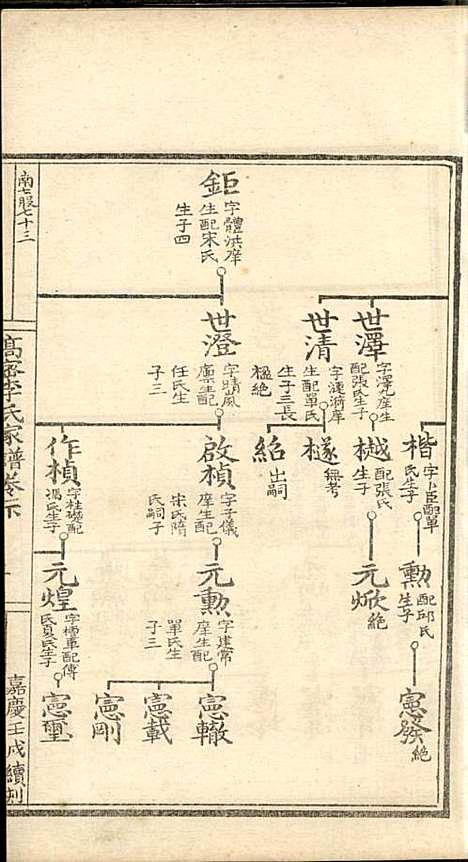 鉅
字體洪庠
生配宋氏
生子四
世澤
字澤九庠生
配張氏生子
世清
字漣漪庠
生配單氏
生子三長
楹絶
世澄
字晴嵐
廩生配
任氏生
子三
楷
字卜臣配單
氏生子
樾
配張氏
生子
檖
無考
紹
出嗣
啟楨
字子儀
庠生配
宋氏隋
氏嗣子
作楨
字桂礎配
馮氏生子
勳
配邱氏
生子
元焮
絶
元勳
字建常
庠生配
單氏生
子三
元煌
配傅
氏夏氏生子
憲發
絶
憲轍
憲載
憲剛
憲璽
南七服七十三
高密李氏家譜卷下
嘉慶壬戌續刻